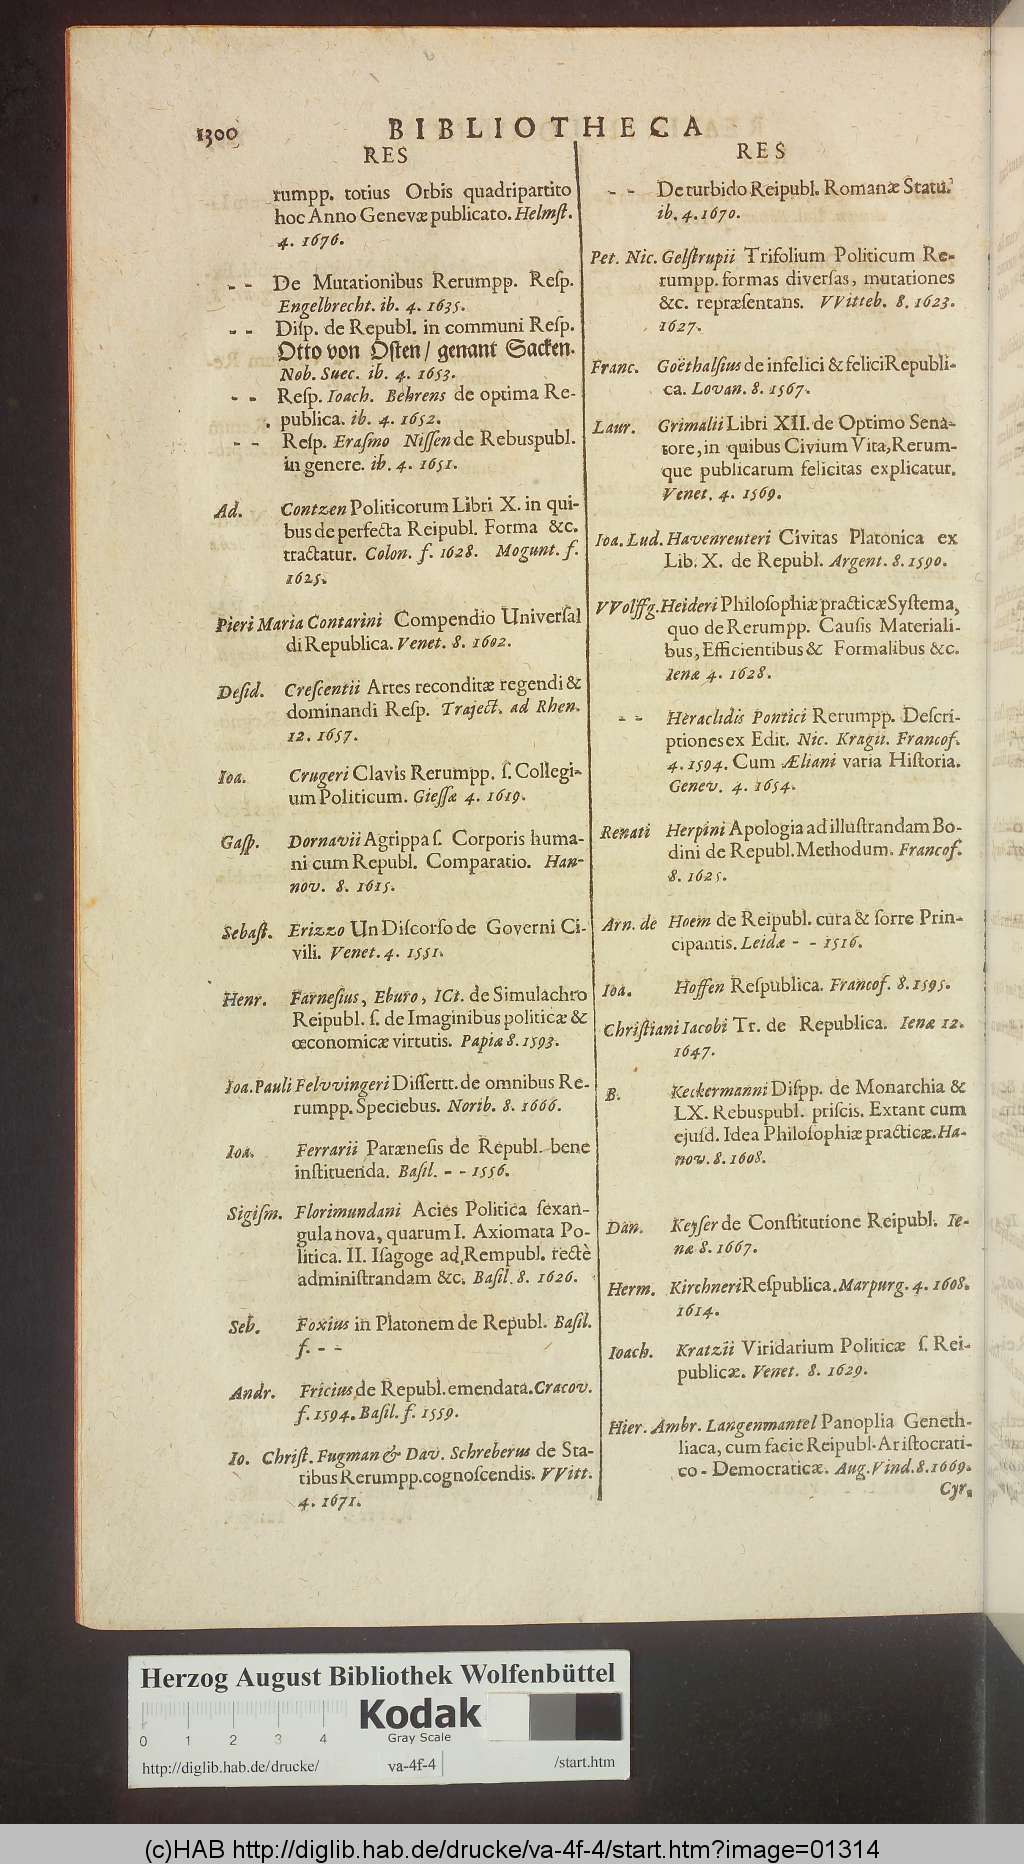 1300
BIBLIOTHECA
RES
rumpp. totius Orbis quadripartito
hoc Anno Genevæ publicato. Helmſt.
4. 1676.
- - De Mutationibus Rerumpp. Reſp.
Engelbrecht. ib. 4. 1635.
- - Diſp. de Republ. in communi Reſp.
Otto von Oſten / genant Sacken.
Nob. Suec. ib. 4. 1653.
- - Reſp. Ioach. Behrens de optima Re-
publica. ib. 4. 1652.
- - Reſp. Eraſmo Niſſen de Rebuspubl.
in genere. ib. 4. 1651.
Ad. Contzen Politicorum Libri X. in qui-
bus de perfecta Reipubl. Forma &c.
tractatur. Colon. f. 1628. Mogunt. f.
1625.
Pieri Maria Contarini Compendio Univerſal
di Republica. Venet. 8. 1602.
Deſid. Creſcentii Artes reconditæ regendi &
dominandi Reſp. Traject. ad Rhen.
12. 1657.
Ioa. Crugeri Clavis Rerumpp. ſ. Collegi-
um Politicum. Gieſſæ 4. 1619.
Gaſp. Dornavii Agrippa ſ. Corporis huma-
ni cum Republ. Comparatio. Han-
nov. 8. 1615.
Sebaſt. Erizzo Un Diſcorſo de Governi Ci-
vili. Venet. 4. 1551.
Henr. Farneſius, Eburo, ICt. de Simulachro
Reipubl. ſ. de Imaginibus politicæ &
œconomicæ virtutis. Papiæ 8. 1593.
Ioa. Pauli Felvvingeri Diſſertt. de omnibus Re-
rumpp. Speciebus. Norib. 8. 1666.
Ioa. Ferrarii Parænesis de Republ. bene
inſtituenda. Baſil. - - 1556.
Sigiſm. Florimundani Acies Politica ſexan-
gula nova, quarum I. Axiomata Po-
litica. II. Iſagoge ad Rempubl. rectè
adminiſtrandam &c. Baſil. 8. 1626.
Seb. Foxius in Platonem de Republ. Baſil.
f. - -
Andr. Fricius de Republ. emendata. Cracov.
f. 1594. Baſil. f. 1559.
Io. Chriſt. Fugman & Dav. Schreberus de Sta-
tibus Rerumpp. cognoſcendis. VVitt.
4. 1671.
RES
- - De turbido Reipubl. Romanæ Statu.
ib. 4. 1670.
Pet. Nic. Gelſtrupii Trifolium Politicum Re-
rumpp. formas diverſas, mutationes
&c. repræſentans. VVitteb. 8. 1623.
1627.
Franc. Goëthalſius de infelici & felici Republi-
ca. Lovan. 8. 1567.
Laur. Grimalii Libri XII. de Optimo Sena-
tore, in quibus Civium Vita, Rerum-
que publicarum felicitas explicatur.
Venet. 4. 1569.
Ioa. Lud. Havenreuteri Civitas Platonica ex
Lib. X. de Republ. Argent. 8. 1590.
VVolffg. Heideri Philoſophiæ practicæ Syſtema,
quo de Rerumpp. Cauſis Materiali-
bus, Efficientibus & Formalibus &c.
Ienæ 4. 1628.
- - Heraclidis Pontici Rerumpp. Deſcri-
ptiones ex Edit. Nic. Kragii. Francof.
4. 1594. Cum Æliani varia Hiſtoria.
Genev. 4. 1654.
Renati Herpini Apologia ad illuſtrandam Bo-
dini de Republ. Methodum. Francof.
8. 1625.
Arn. de Hoem de Reipubl. cura & ſorre Prin-
cipantis. Leidæ - - 1516.
Ioa. Hoffen Reſpublica. Francof. 8. 1595.
Chriſtiani Iacobi Tr. de Republica. Ienæ 12.
1647.
B. Keckermanni Diſpp. de Monarchia &
LX. Rebuspubl. priſcis. Extant cum
ejuſd. Idea Philoſophiæ practicæ. Ha-
nov. 8. 1608.
Dan. Keyſer de Conſtitutione Reipubl. Ie-
næ 8. 1667.
Herm. Kirchneri Reſpublica. Marpurg. 4. 1608.
1614.
Ioach. Kratzii Viridarium Politicæ ſ. Rei-
publicæ. Venet. 8. 1629.
Hier. Ambr. Langenmantel Panoplia Geneth-
liaca, cum facie Reipubl. Ariſtocrati-
co-Democraticæ. Aug. Vind. 8. 1669.
Cyr.
Herzog August Bibliothek Wolfenbüttel
0 1 2 3 4
Kodak
Gray Scale
http://diglib.hab.de/drucke/ va-4f-4 /start.htm
(c)HAB http://diglib.hab.de/drucke/va-4f-4/start.htm?image=01314